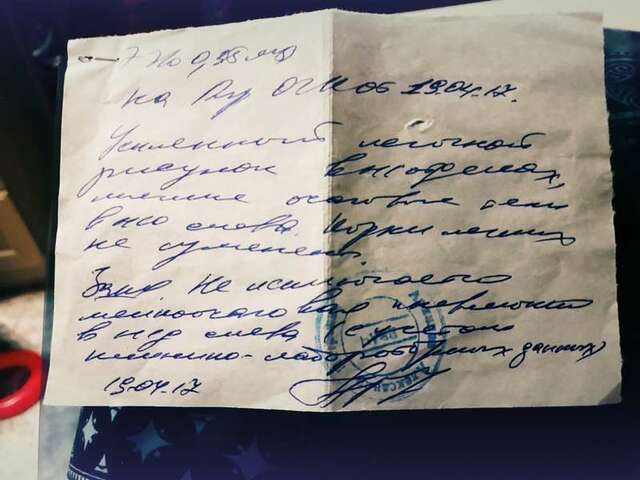 0,35 мзв
на Rg ОГК от 19.04.17.
Усиленный легочной
рисунок в н/отделах,
мелкие очаговые тени
в н/о слева. Корни легких
не
Закл. Не исключается
мелкоочаговая пневмония
в н/д слева (с учетом
клинико-лабораторных данных)
19.04.17